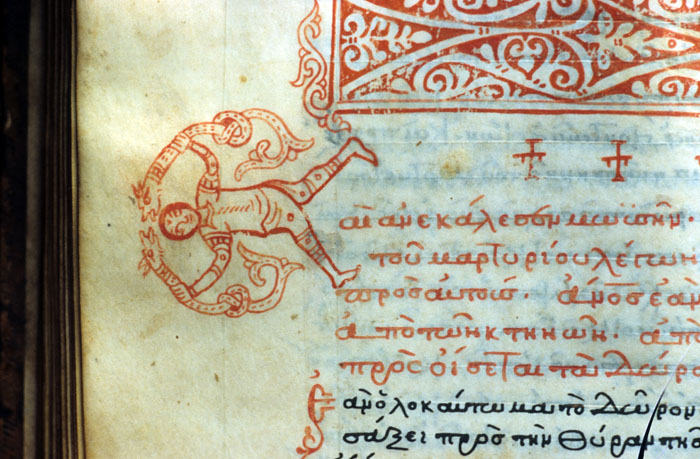 Καὶ ἀνεκάλεσεν μωϋσῆν
τοῦ μαρτυρίου λέγων
πρὸς αὐτοὺς. ἄν̅ο̅ς ἐὰν
ἀπὸ τῶν κτηνῶν. ἀπὸ
προσοίσεται τὰ δῶρα
Ἐὰν ὁλοκαύτωμα τὸ δῶρον
σάξει πρὸς τὴν θύραν τῆς